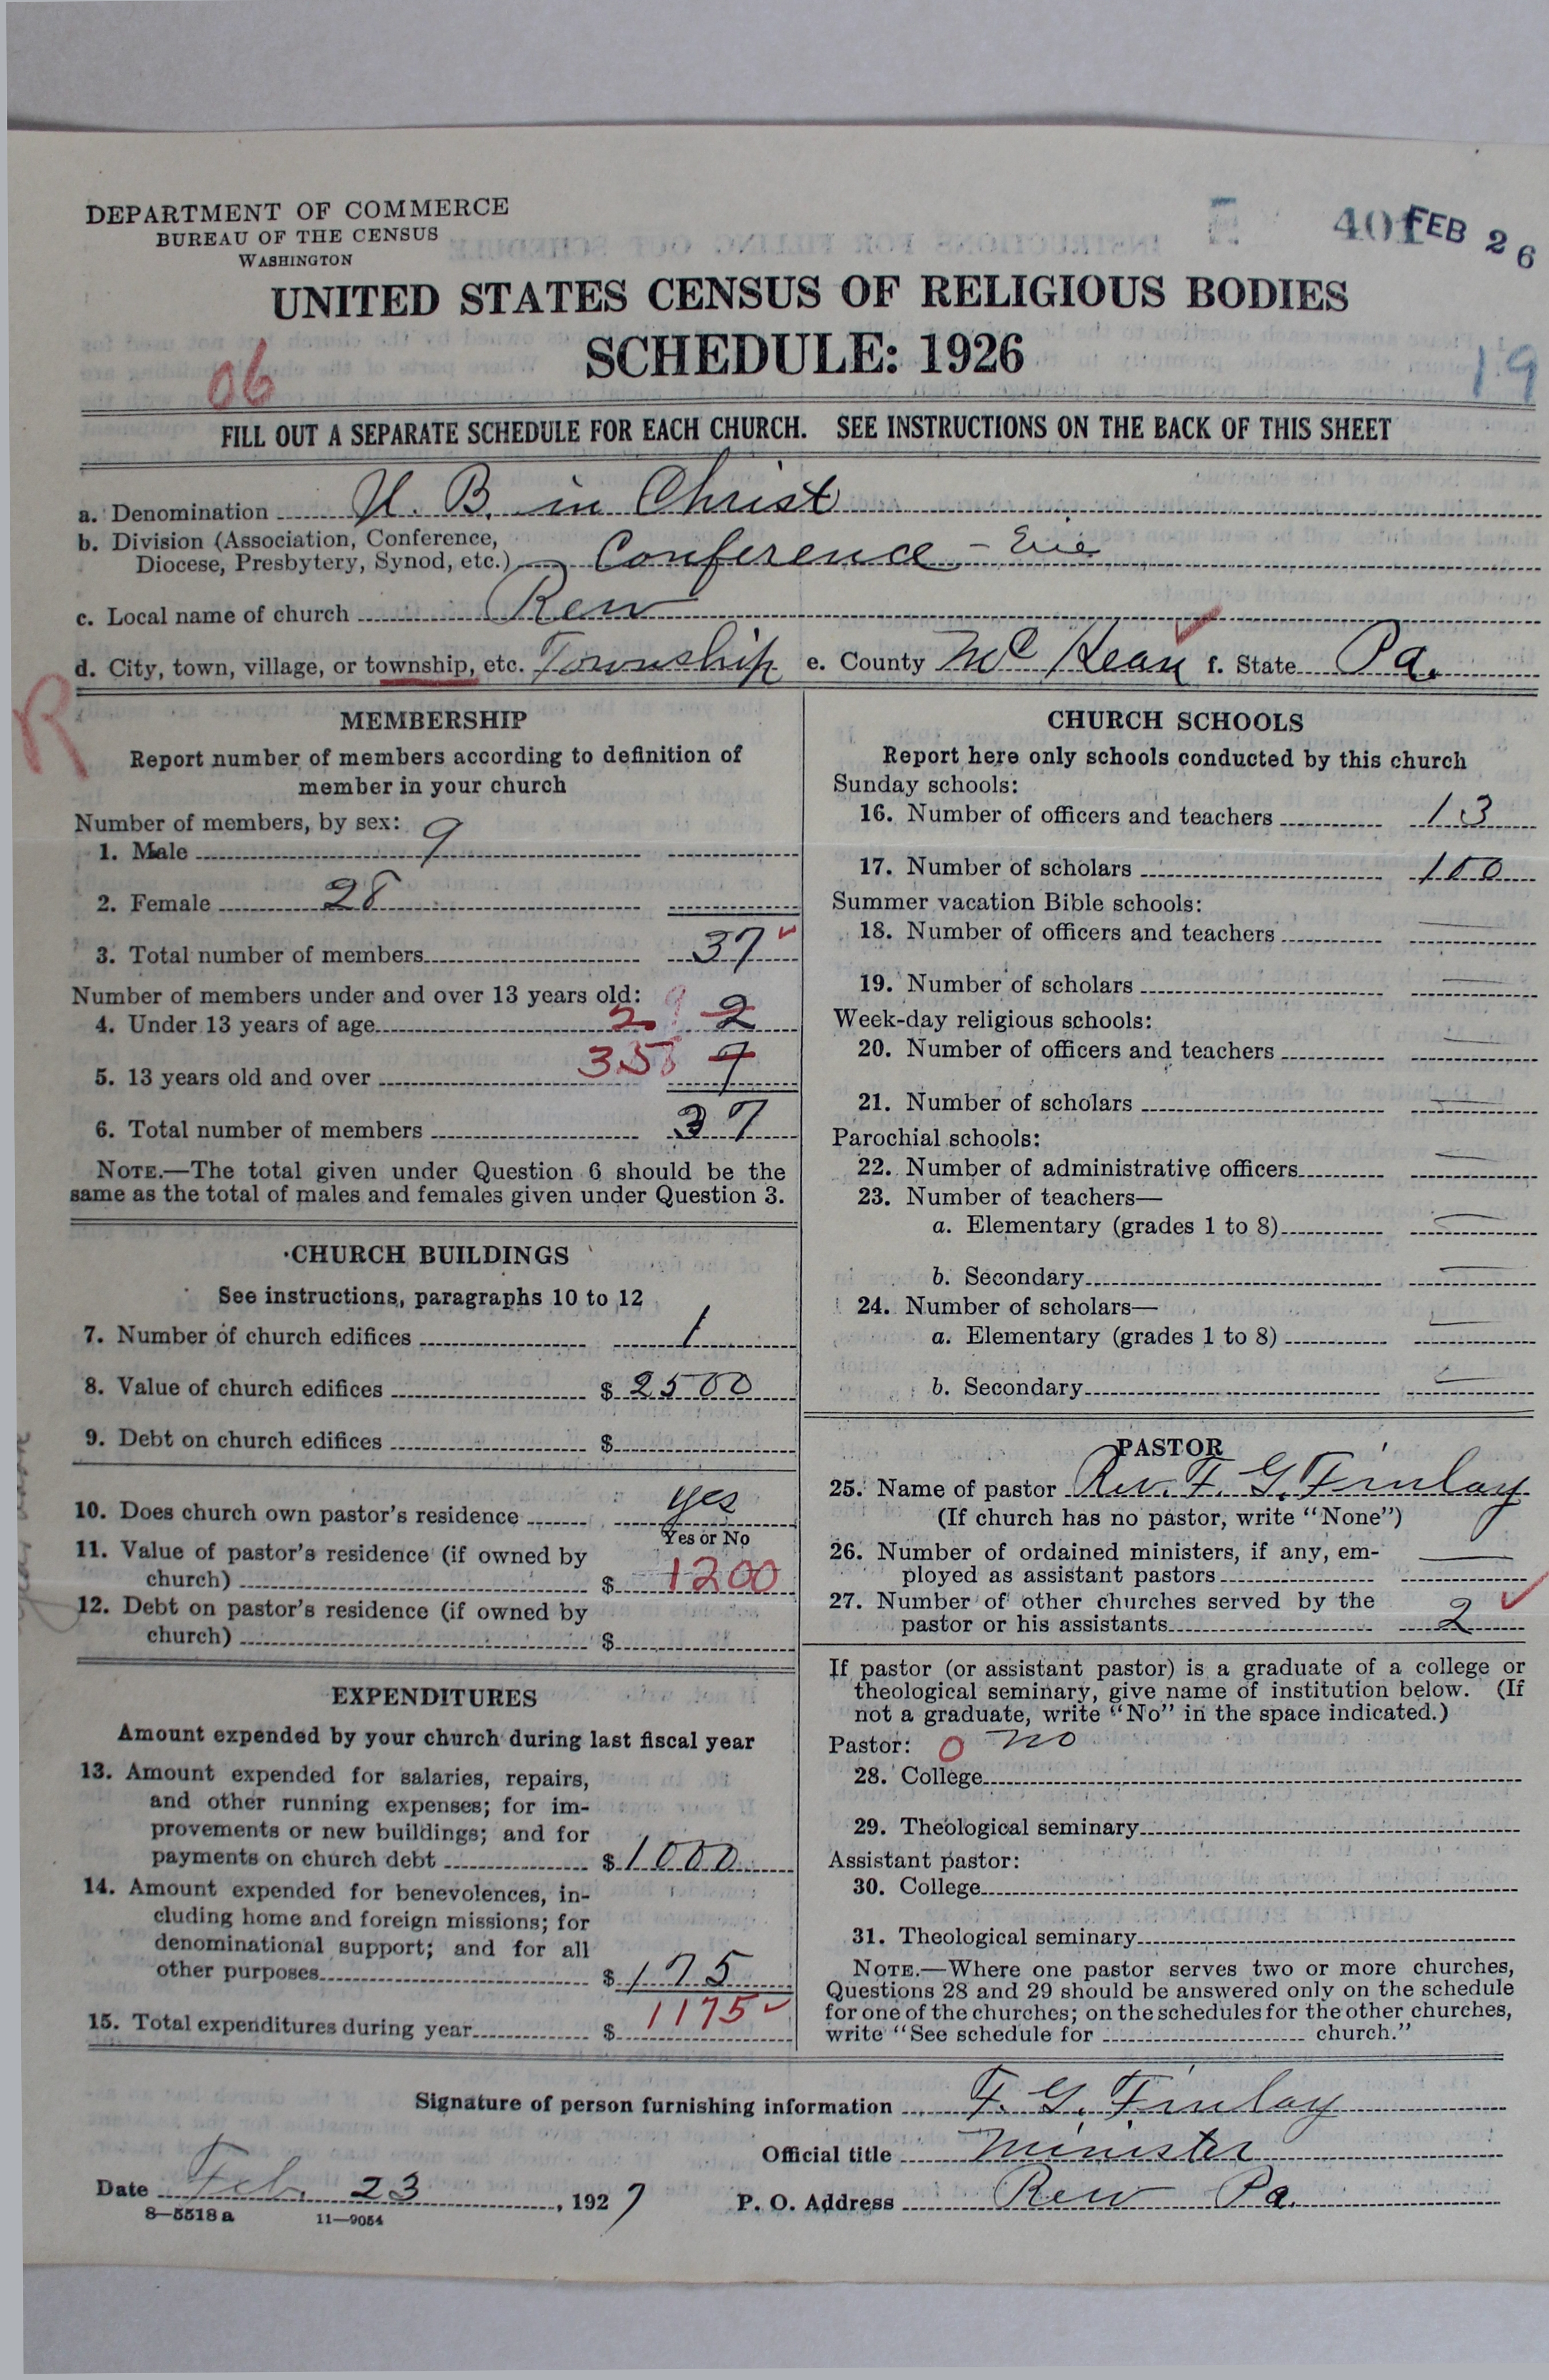 DEPARTMENT OF COMMERCE
BUREAU OF THE CENSUS
WASHINGTON
401 FEB 26
UNITED STATES CENSUS OF RELIGIOUS BODIES
SCHEDULE: 1926
06
19
FILL OUT A SEPARATE SCHEDULE FOR EACH CHURCH. SEE INSTRUCTIONS ON THE BACK OF THIS SHEET
a. Denomination U. B. in Christ
b. Division (Association, Conference,
Diocese, Presbytery, Synod, etc.) Conference - Erie
c. Local name of church Rew
d. City, town, village, or township, etc. Township e. County McKean f. State Pa.
R
MEMBERSHIP
Report number of members according to definition of
member in your church
Number of members, by sex:
1. Male 9
2. Female 28
3. Total number of members 37
Number of members under and over 13 years old:
4. Under 13 years of age 2 2
5. 13 years old and over 35 7
6. Total number of members 37
NOTE.—The total given under Question 6 should be the
same as the total of males and females given under Question 3.
CHURCH BUILDINGS
See instructions, paragraphs 10 to 12
7. Number of church edifices 1
8. Value of church edifices $ 2500
9. Debt on church edifices $
10. Does church own pastor's residence yes
Yes or No
11. Value of pastor's residence (if owned by
church) $ 1200
12. Debt on pastor's residence (if owned by
church) $
EXPENDITURES
Amount expended by your church during last fiscal year
13. Amount expended for salaries, repairs,
and other running expenses; for im-
provements or new buildings; and for
payments on church debt $ 1000
14. Amount expended for benevolences, in-
cluding home and foreign missions; for
denominational support; and for all
other purposes $ 175
15. Total expenditures during year $ 1175
CHURCH SCHOOLS
Report here only schools conducted by this church
Sunday schools:
16. Number of officers and teachers 13
17. Number of scholars 100
Summer vacation Bible schools:
18. Number of officers and teachers —
19. Number of scholars —
Week-day religious schools:
20. Number of officers and teachers —
21. Number of scholars —
Parochial schools:
22. Number of administrative officers —
23. Number of teachers—
a. Elementary (grades 1 to 8) —
b. Secondary —
24. Number of scholars—
a. Elementary (grades 1 to 8) —
b. Secondary —
PASTOR
25. Name of pastor Rev. F. G. Finlay
(If church has no pastor, write "None")
26. Number of ordained ministers, if any, em-
ployed as assistant pastors —
27. Number of other churches served by the
pastor or his assistants 2
If pastor (or assistant pastor) is a graduate of a college or
theological seminary, give name of institution below. (If
not a graduate, write "No" in the space indicated.)
Pastor: 0 no
28. College
29. Theological seminary
Assistant pastor:
30. College
31. Theological seminary
NOTE.—Where one pastor serves two or more churches,
Questions 28 and 29 should be answered only on the schedule
for one of the churches; on the schedules for the other churches,
write "See schedule for church."
Signature of person furnishing information F. G. Finlay
Official title Minister
Date Feb. 23, 1927 P. O. Address Rew Pa.
8—5518a 11—9054